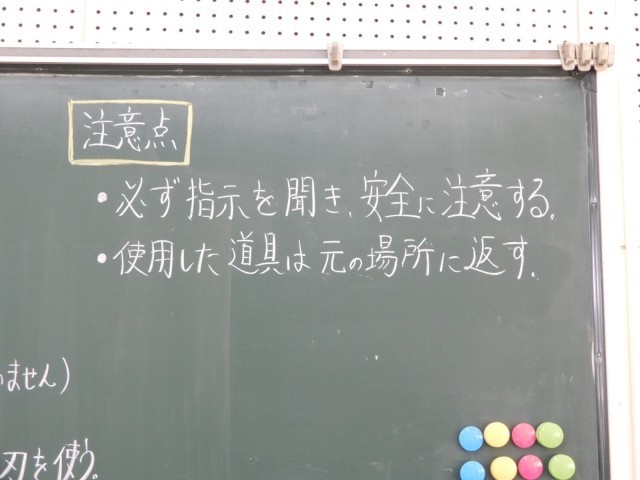 注意点
・必ず指示を聞き、安全に注意する。
・使用した道具は元の場所に返す。
ません)
刃を使う。